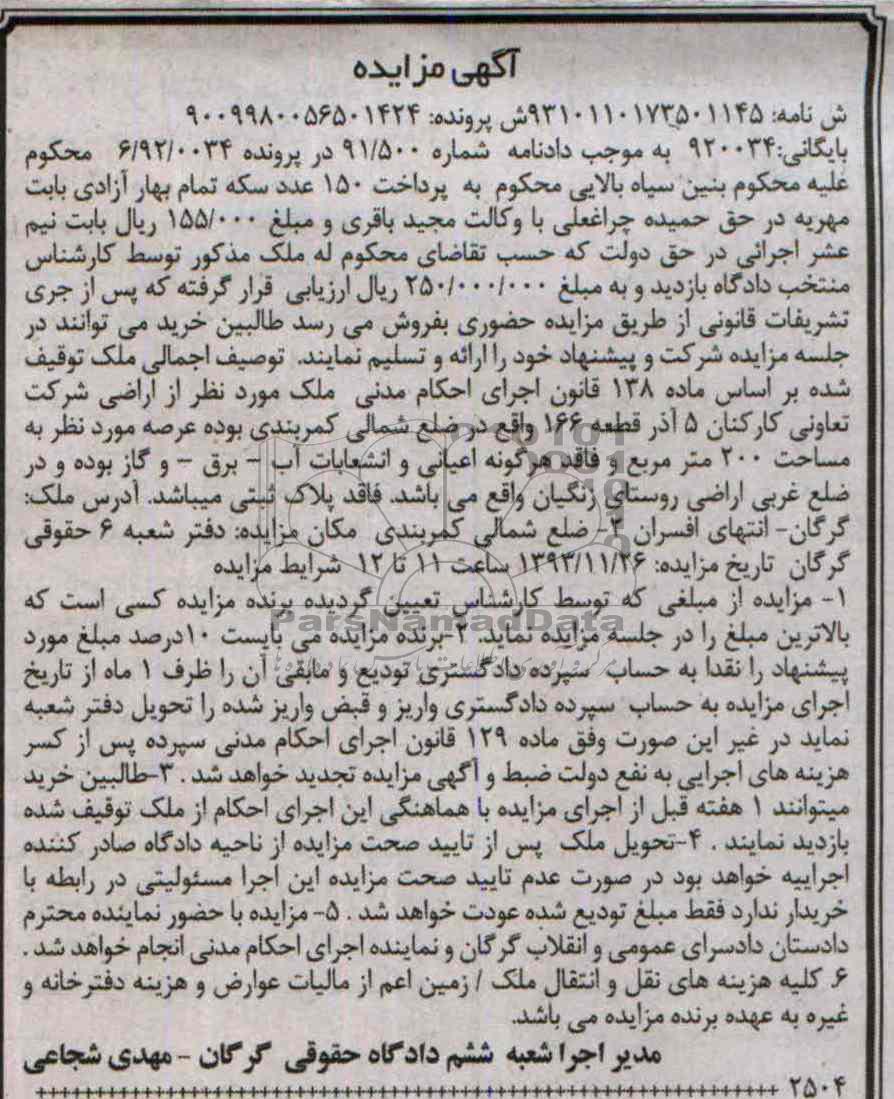 آگهی مزایده
ش نامه: ۹۳۱۰۱۱۰۱۷۳۵۰۱۱۴۵ش پرونده: ۹۰۰۹۹۸۰۰۵۶۵۰۱۴۲۴
بایگانی:۹۲۰۰۳۴ به موجب دادنامه شماره ۹۱/۵۰۰ در پرونده ۶/۹۲/۰۰۳۴ محکوم
علیه محکوم بنین سیاه بالایی محکوم به پرداخت ۱۵۰ عدد سکه تمام بهار آزادی بابت
مهریه در حق حمیده چراغعلی با وکالت مجید باقری و مبلغ ۱۵۵/۰۰۰ ریال بابت نیم
عشر اجرائی در حق دولت که حسب تقاضای محکوم له ملک مذکور توسط کارشناس
منتخب دادگاه بازدید و به مبلغ ۲۵۰/۰۰۰/۰۰۰ ریال ارزیابی قرار گرفته که پس از جری
تشریفات قانونی از طریق مزایده حضوری بفروش می رسد طالبین خرید می توانند در
جلسه مزایده شرکت و پیشنهاد خود را ارائه و تسلیم نمایند. توصیف اجمالی ملک توقیف
شده بر اساس ماده ۱۳۸ قانون اجرای احکام مدنی ملک مورد نظر از اراضی شرکت
تعاونی کارکنان ۵ آذر قطعه ۱۶۶ واقع در ضلع شمالی کمربندی بوده عرصه مورد نظر به
مساحت ۲۰۰ متر مربع و فاقد هرگونه اعیانی و انشعابات آب – برق – و گاز بوده و در
ضلع غربی اراضی روستای زنگیان واقع می باشد. فاقد پلاک ثبتی میباشد. آدرس ملک:
گرگان- انتهای افسران ۲- ضلع شمالی کمربندی مکان مزایده: دفتر شعبه ۶ حقوقی
گرگان تاریخ مزایده: ۱۳۹۳/۱۱/۲۶ ساعت ۱۱ تا ۱۲ شرایط مزایده
۱- مزایده از مبلغی که توسط کارشناس تعیین گردیده برنده مزایده کسی است که
بالاترین مبلغ را در جلسه مزایده نماید. ۲-برنده مزایده می بایست ۱۰درصد مبلغ مورد
پیشنهاد را نقدا به حساب سپرده دادگستری تودیع و مابقی آن را ظرف ۱ ماه از تاریخ
اجرای مزایده به حساب سپرده دادگستری واریز و قبض واریز شده را تحویل دفتر شعبه
نماید در غیر این صورت وفق ماده ۱۲۹ قانون اجرای احکام مدنی سپرده پس از کسر
هزینه های اجرایی به نفع دولت ضبط و آگهی مزایده تجدید خواهد شد . ۳-طالبین خرید
میتوانند ۱ هفته قبل از اجرای مزایده با هماهنگی این اجرای احکام از ملک توقیف شده
بازدید نمایند . ۴-تحویل ملک پس از تایید صحت مزایده از ناحیه دادگاه صادر کننده
اجراییه خواهد بود در صورت عدم تایید صحت مزایده این اجرا مسئولیتی در رابطه با
خریدار ندارد فقط مبلغ تودیع شده عودت خواهد شد . ۵- مزایده با حضور نماینده محترم
دادستان دادسرای عمومی و انقلاب گرگان و نماینده اجرای احکام مدنی انجام خواهد شد .
۶. کلیه هزینه های نقل و انتقال ملک / زمین اعم از مالیات عوارض و هزینه دفترخانه و
غیره به عهده برنده مزایده می باشد.
مدیر اجرا شعبه ششم دادگاه حقوقی گرگان – مهدی شجاعی
۲۵۰۴
ParsNamadData